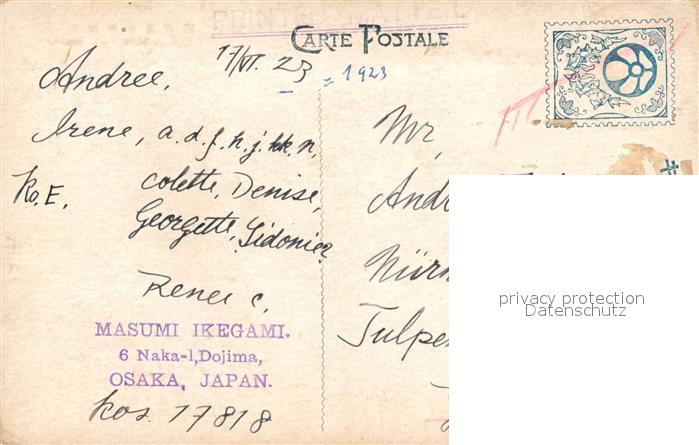 PRINT
CARTE POSTALE
17/VI. 23
= 1923
Andree,
Irene, a. d. f. h. j. kk. n,
Ko. E.
Colette, Denise,
Georgette, Sidonie
Renee c.
MASUMI IKEGAMI.
6 Naka-1, Dojima,
OSAKA, JAPAN.
Kos. 17818
Mr,
Andr
Nürn
Tulpe
privacy protection
Datenschutz